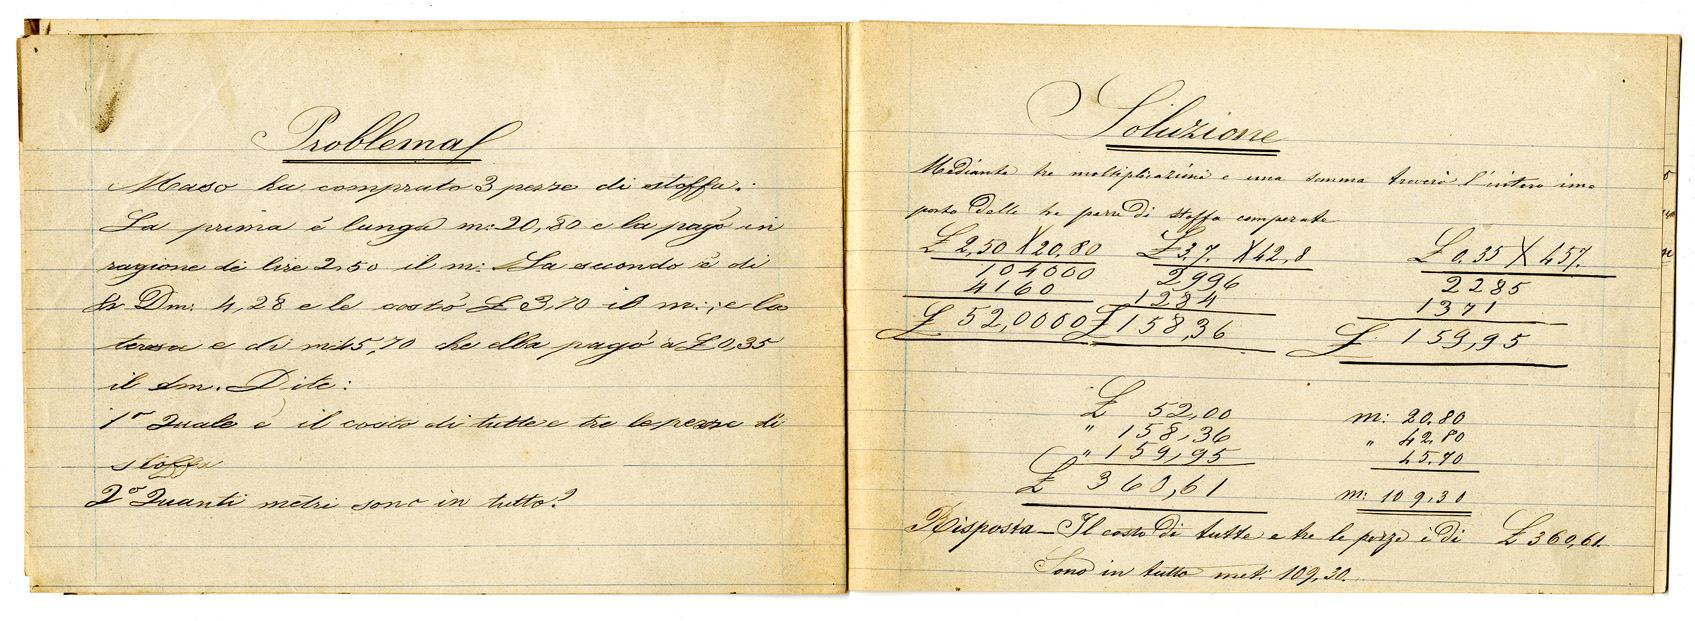 Problema
Maso ha comprato 3 pezze di stoffa.
La prima è lunga m: 20,80 e la pagò in
ragione di lire 2,50 il m: La seconda è di
Dm: 4,28 e le costò £ 3,70 il m:; e la
terza e di m 45,70 che ella pagò a £ 0,35
il dm. Dite:
1º Quale è il costo di tutte e tre le pezze di
stoffa
2º Quanti metri sono in tutto?
Soluzione
Mediante tre moltiplicazioni e una somma troverò l'intero im
porto delle tre pezze di stoffa comperate
£ 2,50 X 20,80 £ 3,7. X 42,8 £ 0.35 X 457.
104000 2996 2285
4160 1284 1371
£ 52,0000 £ 158,36 £ 159,95
£ 52,00 m: 20,80
" 158,36 " 42,80
" 159,95 45,70
£ 360,61 m: 109,30
Risposta - Il costo di tutte e tre le pezze è di £ 360,61.
Sono in tutto met. 109,30.